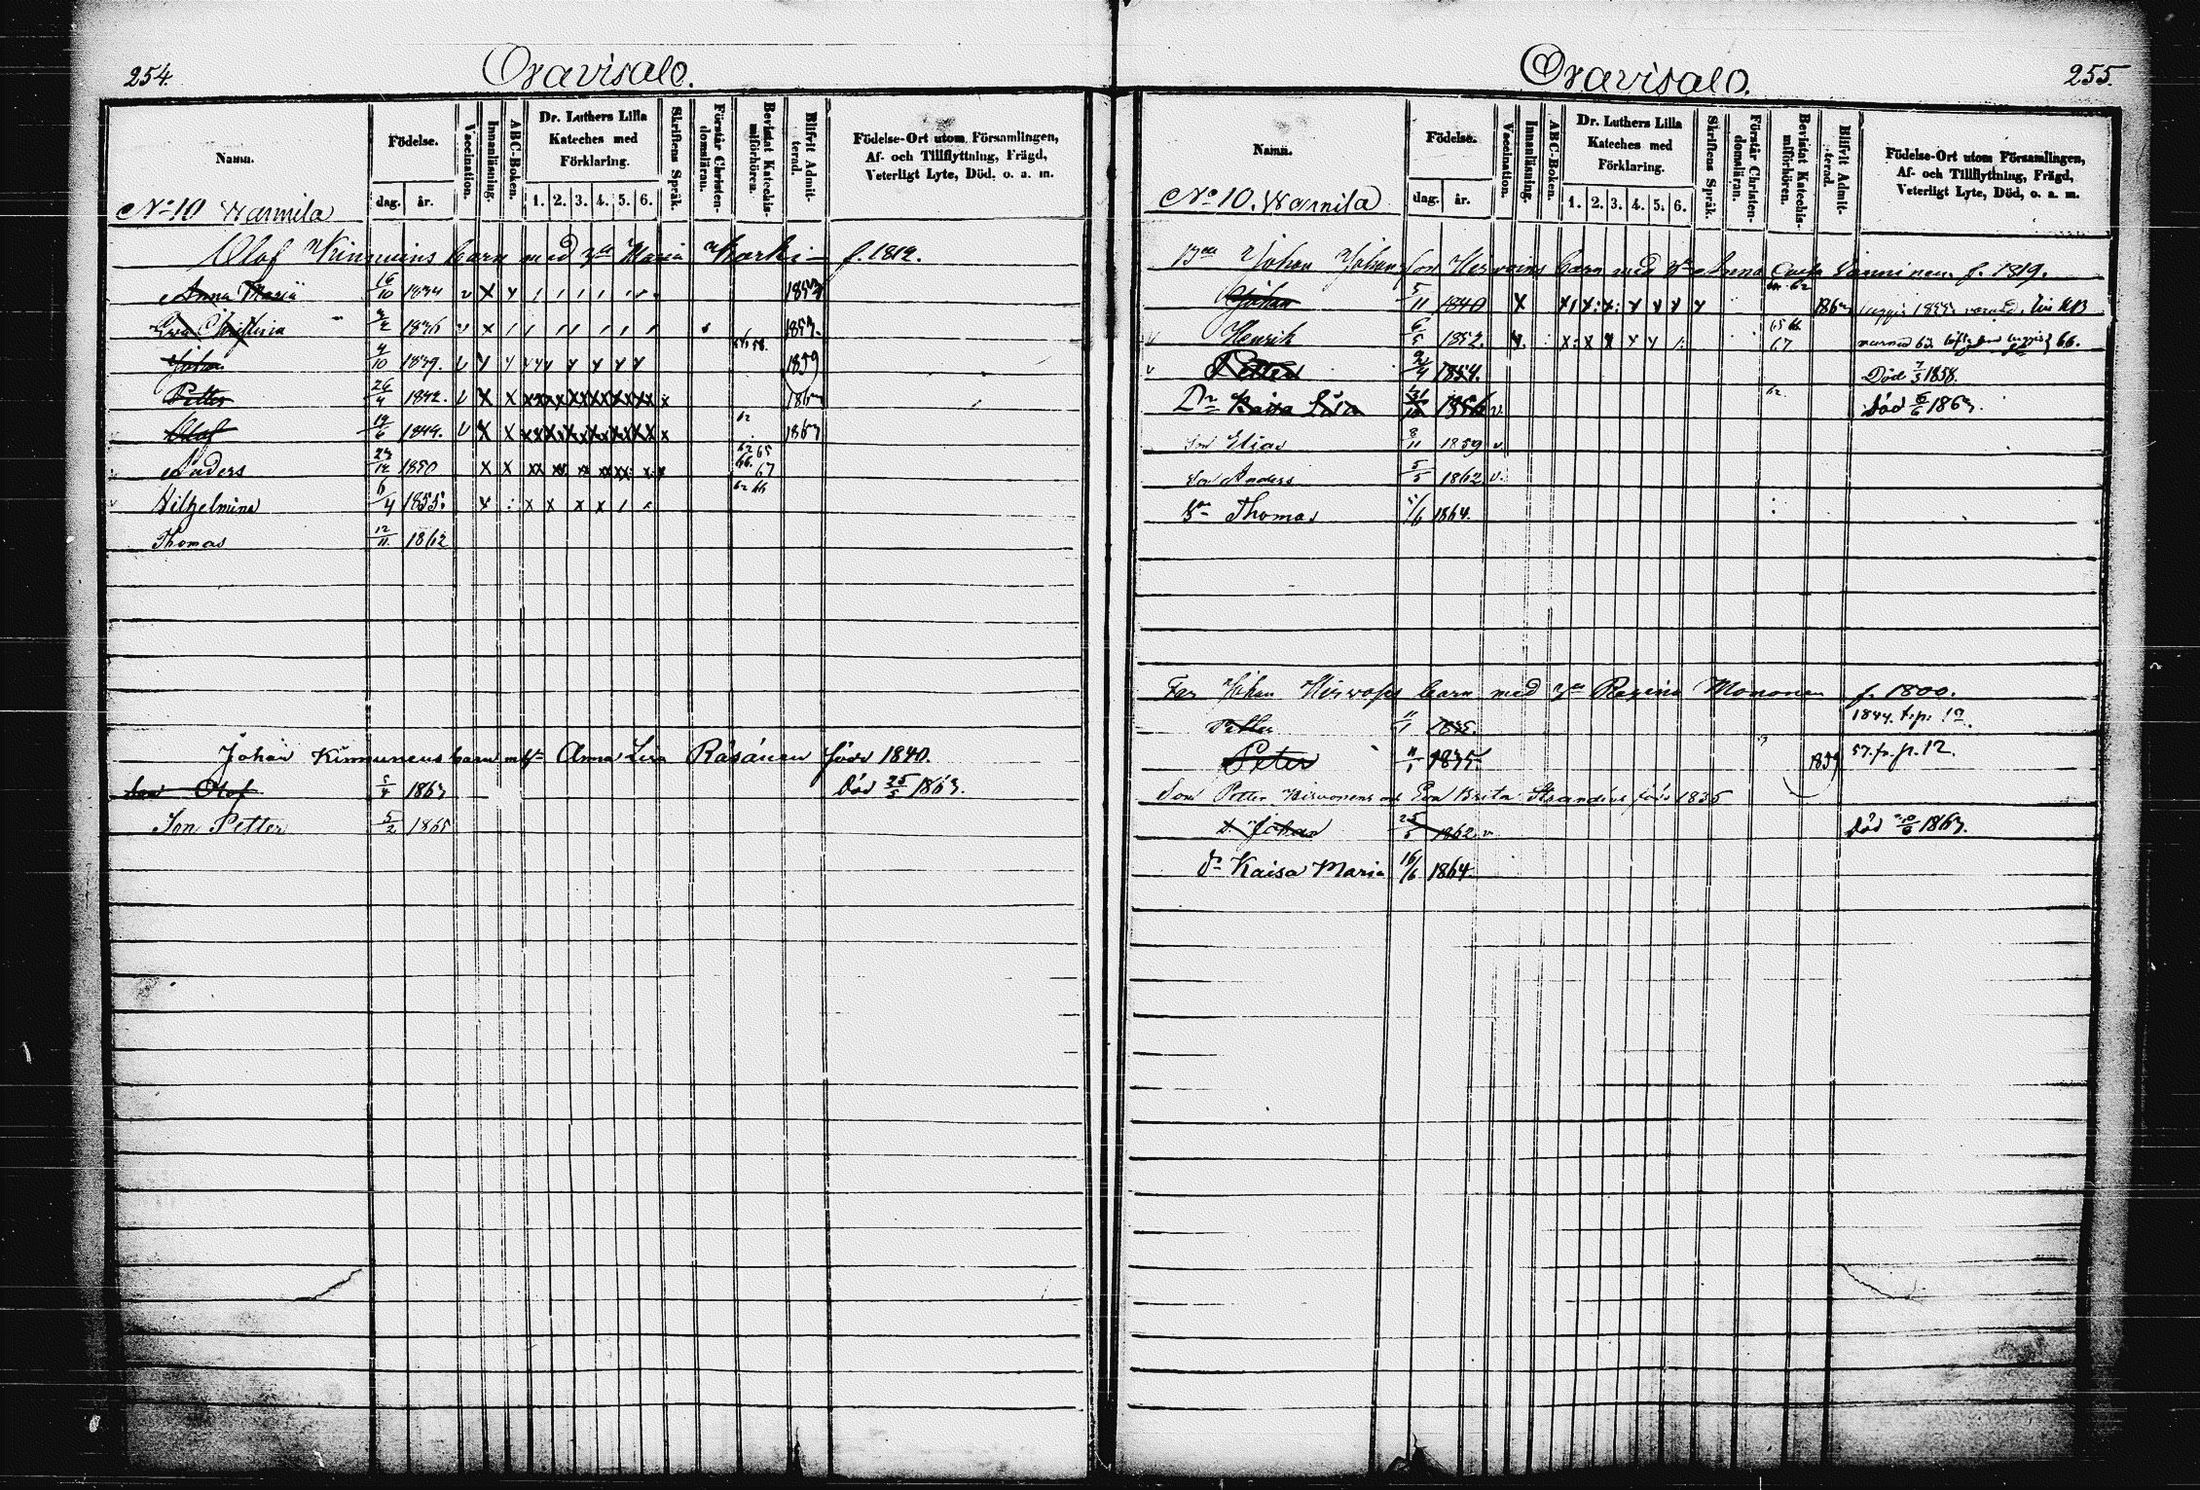 254.
Oravisalo.
Namn.
Födelse.
dag. år.
Vaccination.
Innanläsning.
ABC-Boken.
Dr. Luthers Lilla Kateches med Förklaring.
1. 2. 3. 4. 5. 6.
Skriftens Språk.
Förstår Christendomsläran.
Bevistat Katechismiförhören.
Blifvit Admitterad.
Födelse-Ort utom Församlingen, Af- och Tillflyttning, Frägd, Veterligt Lyte, Död. o. a. m.
No 10 Warmila
Olof Kinnuins barn med Maria f. 1812.
Anna Maria 16/10 1834 1853
Eva Christina 1836 1853.
Johan 4/10 1839. 58. 1859
Petter 26/4 1842.
Olof 1849. 62
Anders 1850 62 65 66. 67
Wilhelmina 6/4 1855. 62 66
Thomas 12/11 1862
Johan Kinnunens barn m. h. Anna Lisa Räsänen född 1840.
Son Olof 5/4 1863 Död 25/5 1863.
Son Petter 5/2 1865
Oravisalo.
255.
Namn.
Födelse.
dag. år.
Vaccination.
Innanläsning.
ABC-Boken.
Dr. Luthers Lilla Kateches med Förklaring.
1. 2. 3. 4. 5. 6.
Skriftens Språk.
Förstår Christendomsläran.
Bevistat Katechismiförhören.
Blifvit Admitterad.
Födelse-Ort utom Församlingen, Af- och Tillflyttning, Frägd, Veterligt Lyte, Död, o. a. m.
No 10. Warmila
Johan Johansson barn med Anna f. 1819.
Johan 5/11 1840
Henrik 6/5 1852. 67 66.
Petter 1854. Död 7/3 1858.
Dr Kaisa Lisa 1856 v. 62. död 1863.
Son Elias 8/11 1859 v
Son Anders 5/5 1862 v.
Son Thomas 1864.
Far Johan barn med Regina Mononen f. 1800.
Petter 11/1 1835. 1844. fr. p.
Peter 11/1 1835. 1859 57. fr. p. 12.
Son Petter Hirvonens Eva Brita född 1836
S. Johan 25/5 1862 v död 1863.
Dr Kaisa Maria 16/6 1864.